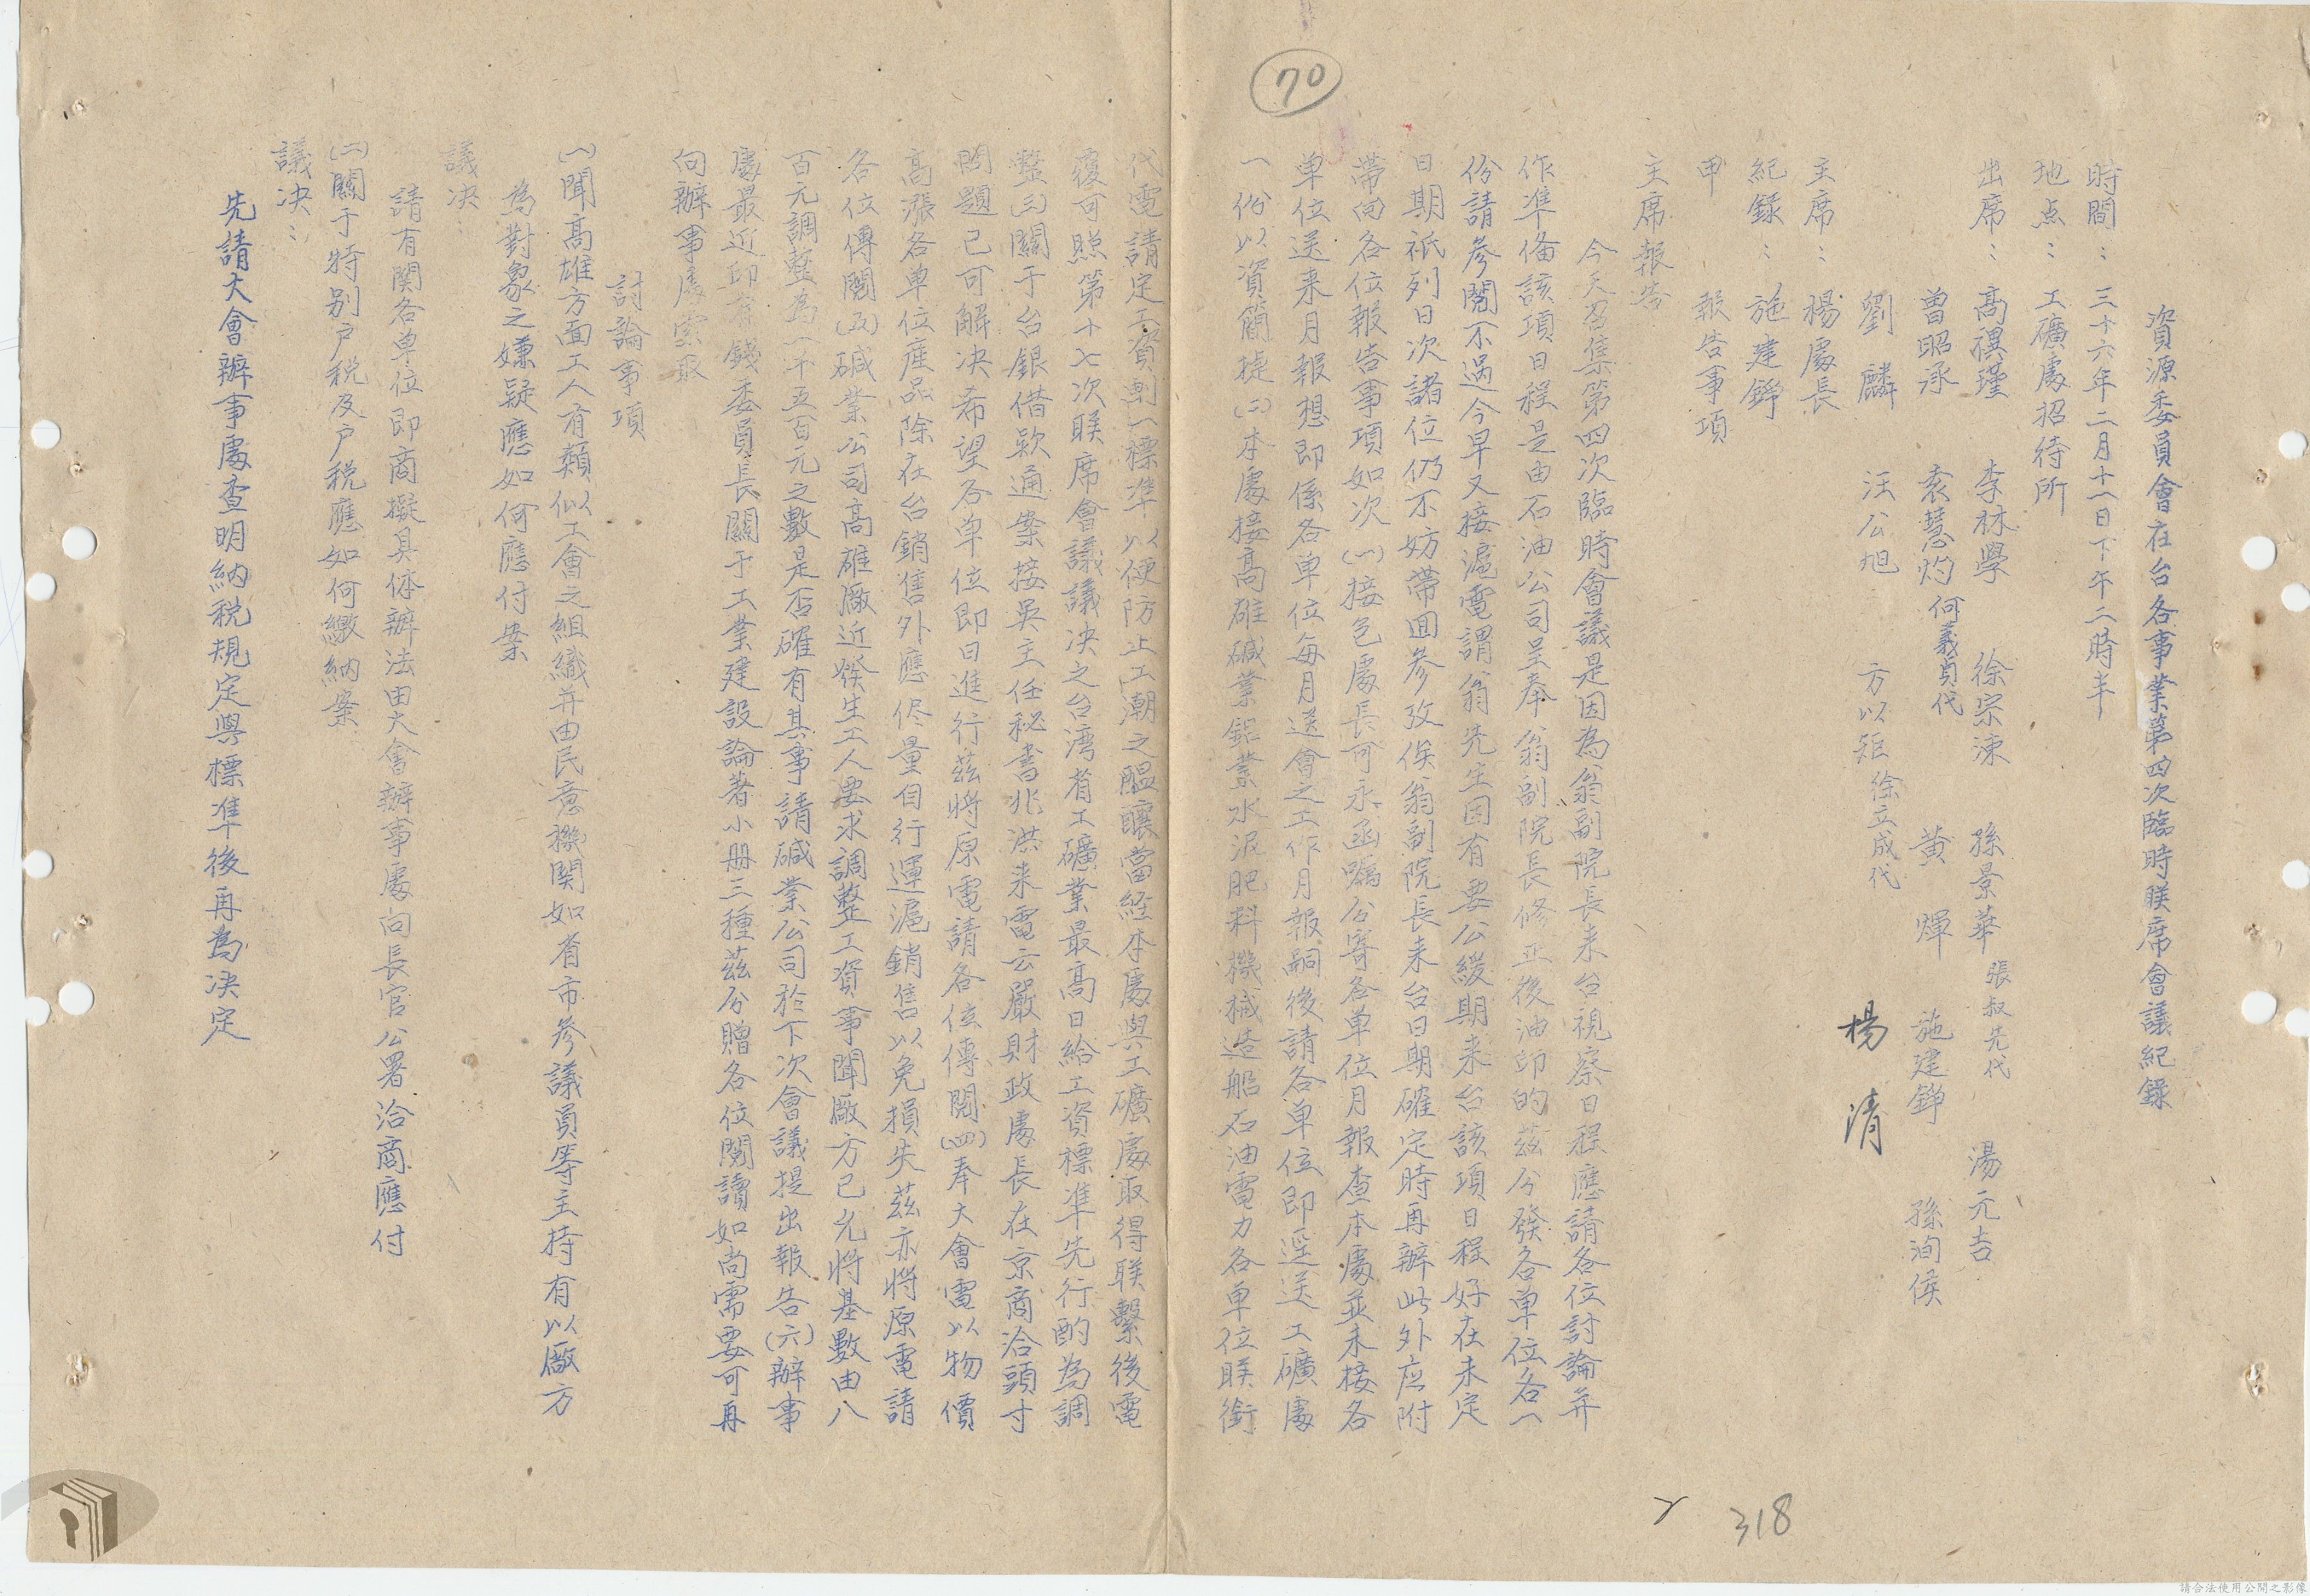 資源委員會在台各事業第四次臨時联席會議紀錄
時間：三十六年二月十一日下午二時半
地点：工礦處招待所
出席：高禩瑾 李林學 徐宗涑 孫景華 張叔先代 湯元吉
曾昭承 袁慧灼 何義貞代 黄煇 施建錚 孫洵侯
劉麟 汪公旭 方以矩 徐立成代 楊清
主席：楊處長
紀錄：施建錚
甲 報告事項
主席報告
今天召集第四次臨時會議是因為翁副院長来台視察日程應請各位討論并
作準備該項日程是由石油公司呈奉翁副院長修正後油印的茲分發各單位各一
份請参閱不過今早又接滬電謂翁先生因有要公緩期来台該項日程好在未定
日期祇列日次諸位仍不妨帶囬参攷俟翁副院長来台日期確定時再辦此外应附
帶向各位報告事項如次(一)接包處長可永函囑分寄各單位月報查本處並未接各
單位送来月報想即係各單位每月送會之工作月報嗣後請各單位即逕送工礦處
一份以資簡捷(二)本處接高雄碱業鋁業水泥肥料機械造船石油電力各單位联銜
代電請定工資劃一標準以便防止工潮之醖釀當経本處與工礦處取得联繫後電
復可照第十七次联席會議議决之台湾省工礦業最高日給工資標準先行酌為調
整(三)關于台銀借欵通案接吳主任秘書兆洪来電云嚴財政處長在京商洽頭寸
問題已可解决希望各单位即日進行茲將原電請各位傳閱(四)奉大會電以物價
高漲各单位産品除在台銷售外應侭量自行運滬銷售以免損失茲亦將原電請
各位傳閱(五)碱業公司高雄廠近発生工人要求調整工資事聞廠方已允將基數由八
百元調整為一千五百元之數是否確有其事請碱業公司於下次會議提出報告(六)辦事
處最近印有錢委員長關于工業建設論著小册三種茲分贈各位閱讀如尚需要可再
向辦事處索取
討論事項
(一)聞高雄方面工人有類似工會之組織并由民意機関如省市参議員等主持有以廠方
為對象之嫌疑應如何應付案
議决：
請有関各单位即商擬具体辦法由大會辦事處向長官公署洽商應付
(二)關于特别户税及户税應如何繳納案
議决：
先請大會辦事處查明納税規定與標準後再為决定
70
318
請合法使用公開之影像